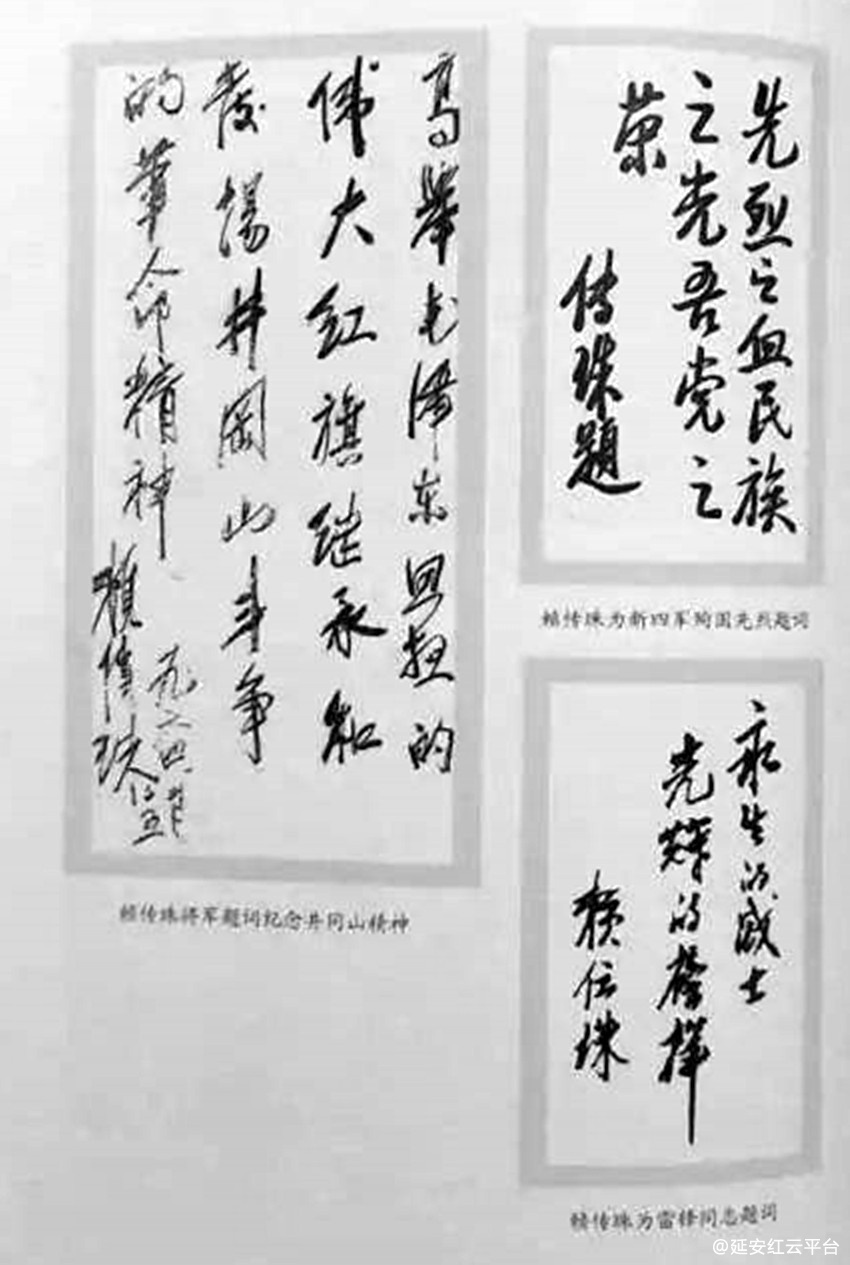 高舉毛泽东思想的
伟大红旗继承和
發揚井岡山斗争
的革命精神
一九六四
賴傳珠
赖传珠将军题词纪念井冈山精神
先烈之血民族
之光吾党之
荣
传珠題
赖传珠为新四军殉国先烈题词
永生的战士
光辉的榜样
赖传珠
赖传珠为雷锋同志题词
@延安红云平台